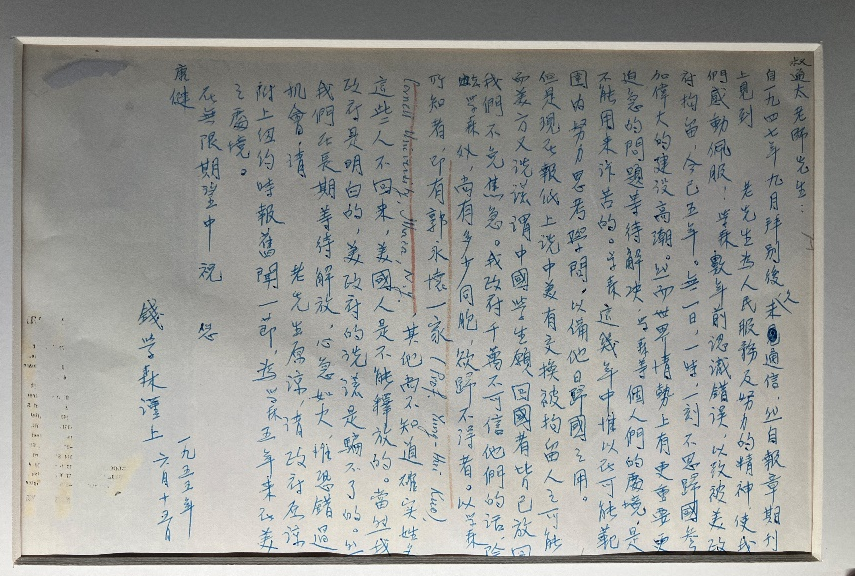 叔通太老師先生：
自一九四七年九月拜別後久未通信，然自報章期刊
上見到　老先生為人民服務及努力的精神使我
們感動佩服！學森數年前認識錯誤，以致被美政
府拘留，今已五年。無一日，一時，一刻不思歸國參
加偉大的建設高潮。然而世界情勢上有更重要更
迫急的問題等待解決，學森等個人們的處境，是
不能用來訴苦的。學森這幾年中惟以在可能範
圍內努力思考學問，以備他日歸國之用。
但是現在報紙上說中美有交換被拘留人之可能
而美方又說謊謂中國學生願回國者皆已放回
我們不免焦急。我政府千萬不可信他們的話，除
學森外，尚有多少同胞，欲歸不得者。以學森
所知者，即有郭永懷一家（Prof. Yung-Huai Kuo）
Cornell University, Ithaca, N.Y. 其他尚不知道確實姓名
這些人不回來，美國人是不能釋放的。當然我
政府是明白的，美政府的說謊是騙不了的。然
我們在長期等待解放，心急如火，惟恐錯過
機會，請　老先生原諒，請政府原諒
附上紐約時報舊聞一節，為學森五年來在美
之處境。
在無限期望中祝　您
康健
錢學森謹上
一九五五年
六月十五日